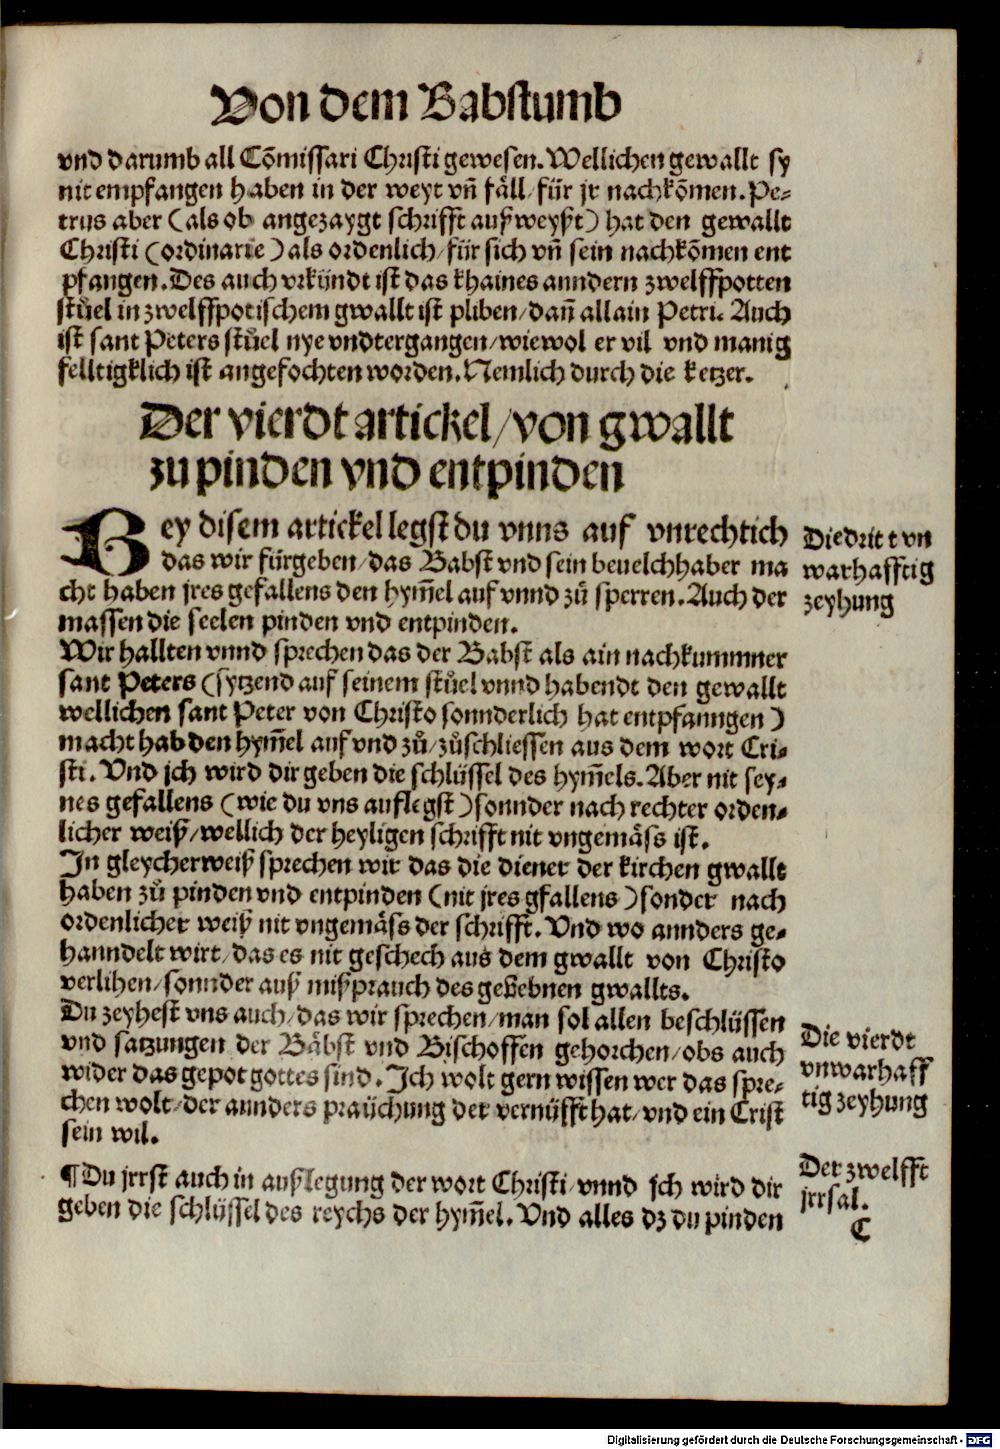 Von dem Babstumb
vnd darumb all Cõmissari Christi gewesen. Wellichen gewallt sy
nit empfangen haben in der weyt vñ fäll/ für jr nachkõmen. Pe⸗
trus aber (als ob angezaygt schrifft außweyßt) hat den gewallt
Christi (ordinarie) als ordenlich/ für sich vñ sein nachkõmen ent
pfangen. Des auch vrkündt ist das khaines anndern zwelffpotten
stůel in zwelffpotischem gwallt ist pliben/ dañ allain Petri. Auch
ist sant Peters stůel nye vndtergangen/ wiewol er vil vnd manig
felltigklich ist angefochten worden. Nemlich durch die ketzer.
Der vierdt artickel/ von gwallt
zu pinden vnd entpinden
Bey disem artickel legst du vnns auf vnrechtich
das wir fürgeben/ das Babst vnd sein beuelchhaber ma
cht haben jres gefallens den hym̃el auf vnnd zů sperren. Auch der
massen die seelen pinden vnd entpinden.
Die dritt vn
warhafftig
zeyhung
Wir hallten vnnd sprechen das der Babst als ain nachkummner
sant Peters (sytzend auf seinem stůel vnnd habendt den gewallt
wellichen sant Peter von Christo sonnderlich hat entpfanngen)
macht hab den hym̃el auf vnd zů/ zůschliessen aus dem wort Cri⸗
sti. Vnd jch wird dir geben die schlüssel des hym̃els. Aber nit sey⸗
nes gefallens (wie du vns auflegst) sonnder nach rechter orden⸗
licher weiß/ wellich der heyligen schrifft nit vngemäss ist.
In gleycherweiß sprechen wir das die diener der kirchen gwallt
haben zů pinden vnd entpinden (nit jres gfallens) sonder nach
ordenlicher weiß nit vngemäss der schrifft. Vnd wo annders ge⸗
hanndelt wirt/ das es nit geschech aus dem gwallt von Christo
verlihen/ sonnder auß mißprauch des gebnen gwallts.
Du zeyhest vns auch/ das wir sprechen/ man sol allen beschlüssen
vnd satzungen der Bäbst vnd Bischoffen gehorchen/ obs auch
wider das gepot gottes sind. Ich wolt gern wissen wer das spre⸗
chen wolt/ der annders praüchung der vernüfft hat/ vnd ein Crist
sein wil.
Die vierdt
vnwarhaff
tig zeyhung
¶ Du jrrst auch in außlegung der wort Christi/ vnnd jch wird dir
geben die schlüssel des reychs der hym̃el. Vnd alles dz du pinden
Der zwelfft
jrrsal.
C
Digitalisierung gefördert durch die Deutsche Forschungsgemeinschaft - DFG